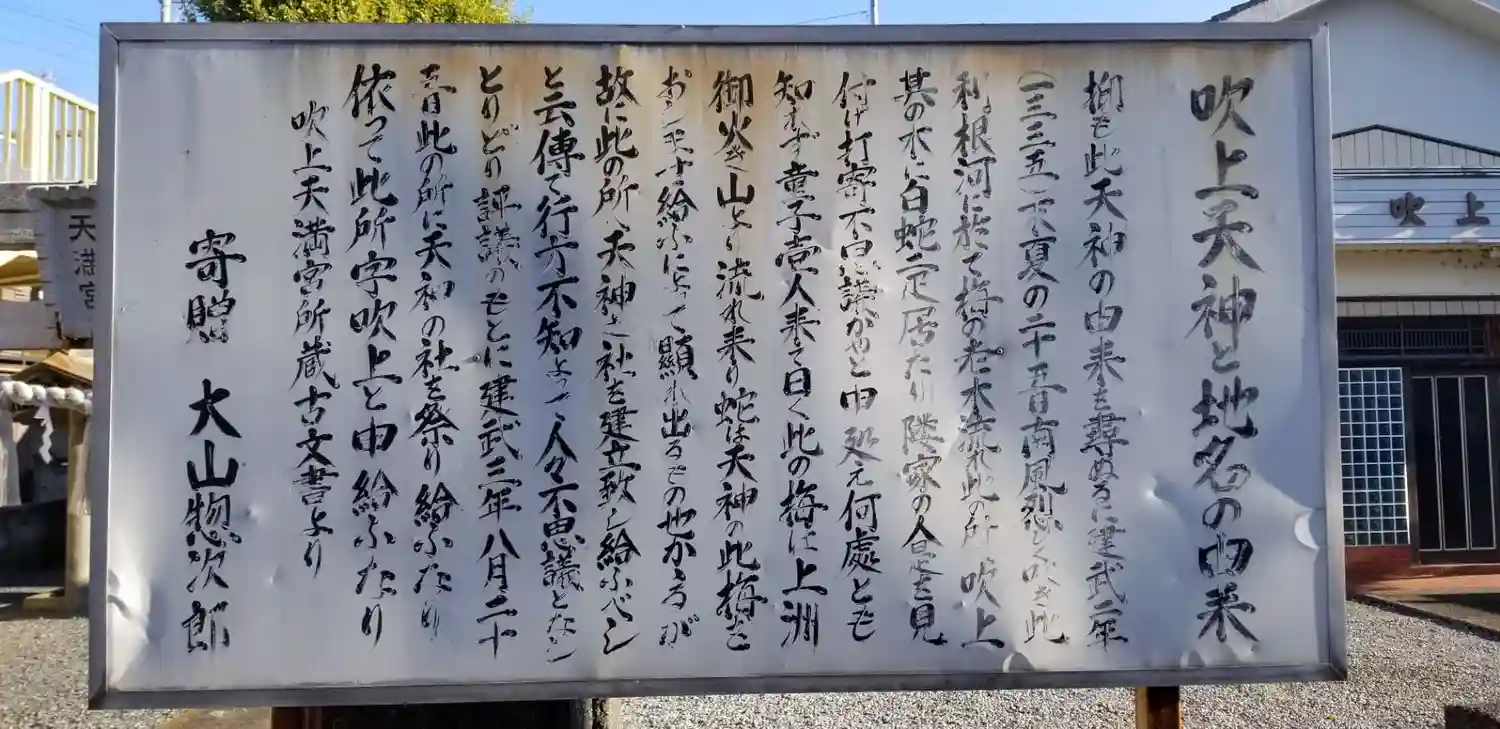 吹上天神と地名の由来
抑も此天神の由来を尋ぬるに建武二年
(一三三五)末夏の二十五日南風烈しく吹き此
利根河に於て梅の老木流れ此の所吹上
其の木に白蛇二疋居たり隣家の人是を見
付け打寄不思議がやと申処え何處とも
知らず童子壱人来て曰く此の梅は上洲
御火き山より流れ来り蛇は天神の此梅を
おしませ給ふによって顯れ出るその也かるが
故に此の所へ天神之社を建立致し給ふべし
と云傳て行方不知よって人々不思議となし
とりどり評議のもとに建武三年八月二十
五日此の所に天神の社を祭り給ふなり
依って此所字吹上と申給ふなり
吹上天満宮所蔵古文書より
寄贈 大山惣次郎
天満宮
吹上